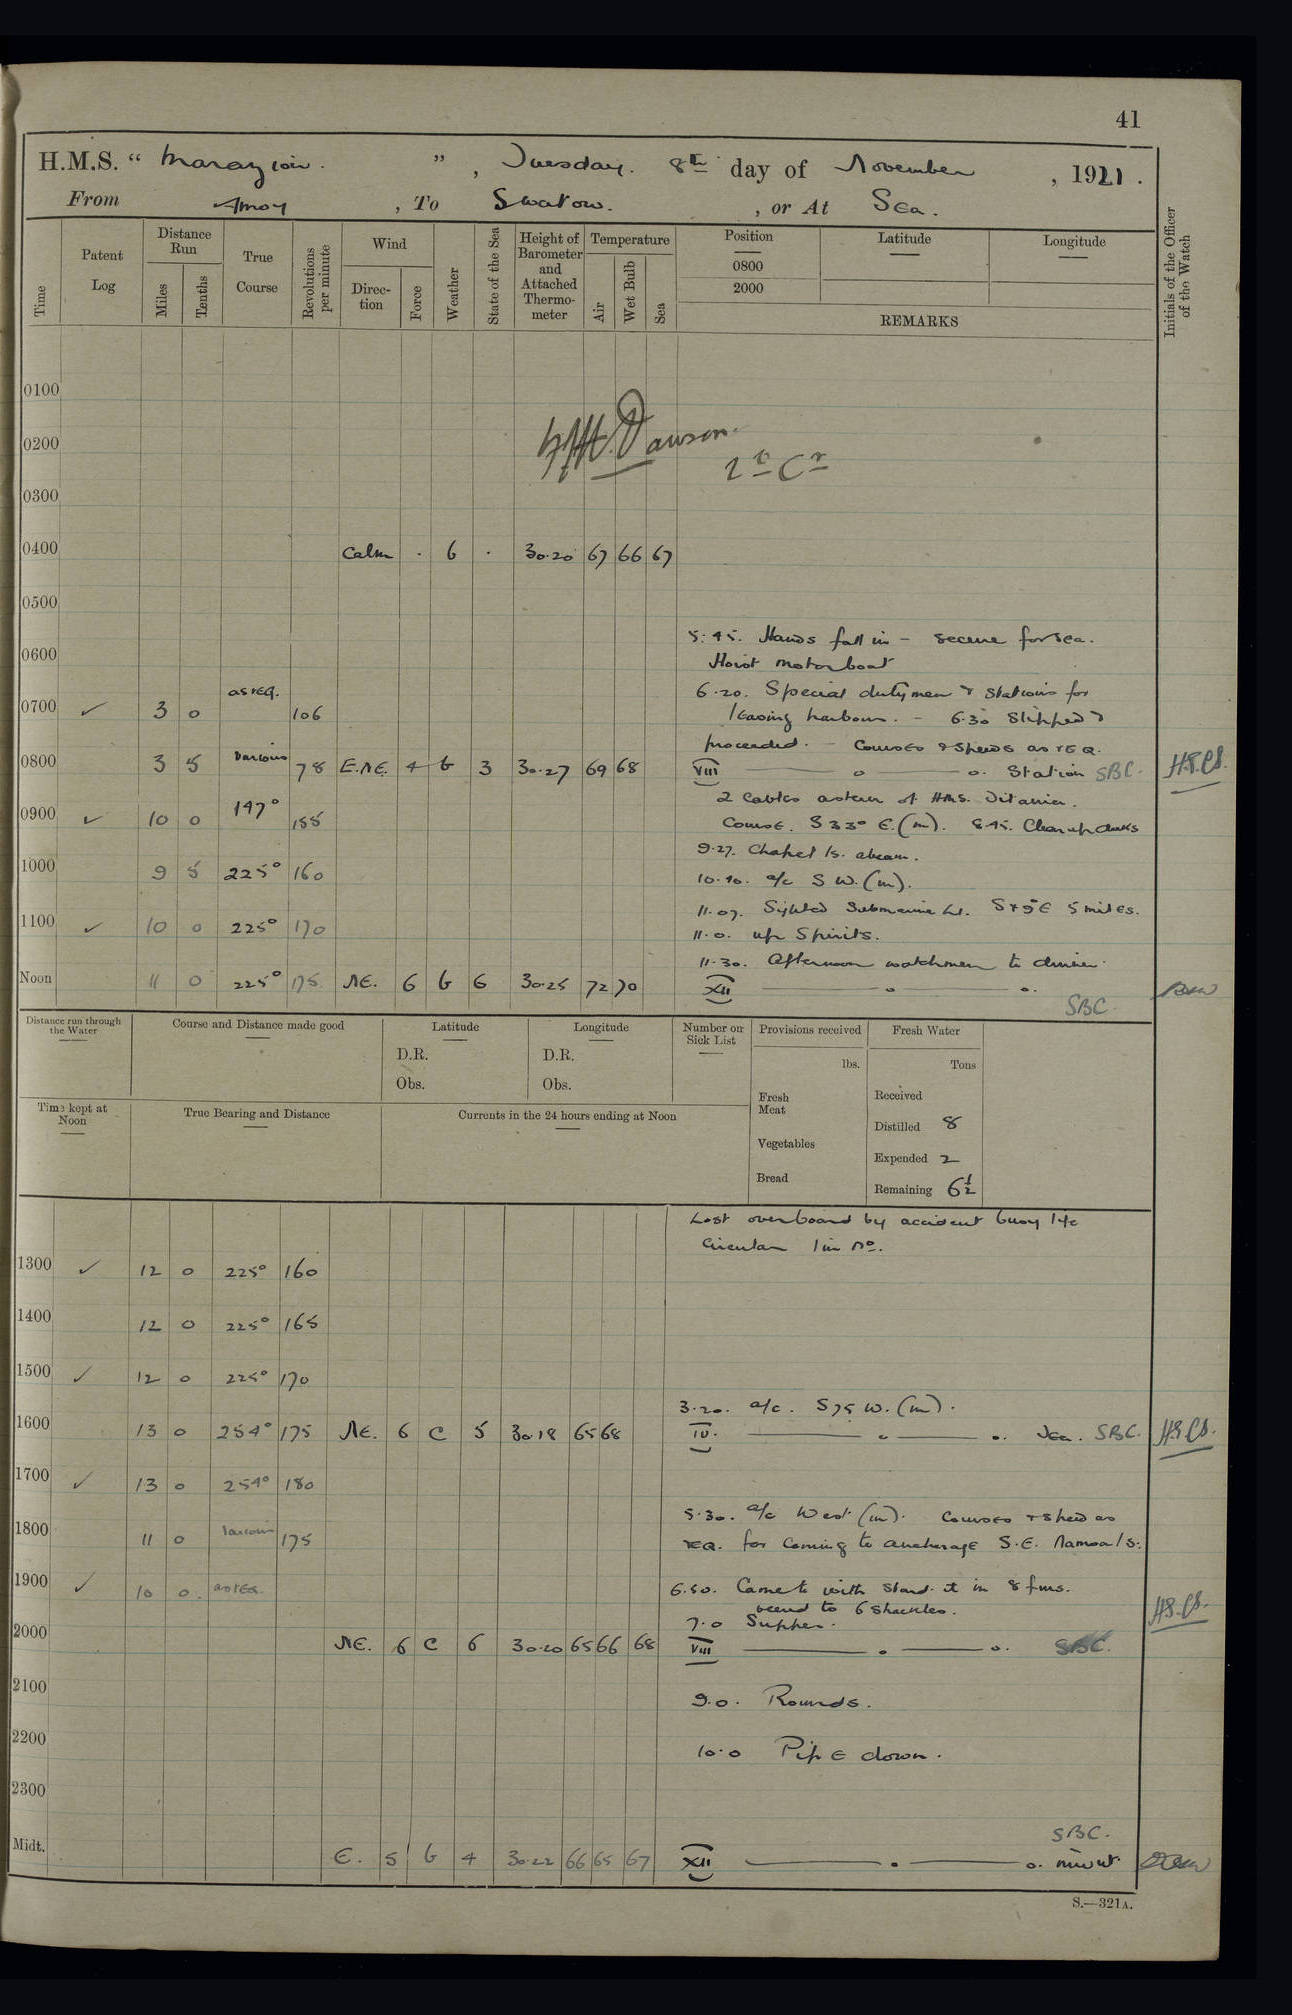 41
H.M.S. " Marazion. ", Tuesday. 8th day of November, 1921.
From Amoy, To Swatow., or At Sea.
Time
Patent Log
Distance Run
Miles
Tenths
True Course
Revolutions per minute
Wind
Direction
Force
Weather
State of the Sea
Height of Barometer and Attached Thermometer
Temperature
Air
Wet Bulb
Sea
Position
0800
2000
Latitude
Longitude
REMARKS
Initials of the Officer of the Watch
0100
Dawson.
0200
Lt Cr
0300
0400 Calm . b . 30.20 67 66 67
0500
5.45. Hands fall in – secure for sea.
0600
Hoist motor boat
as req.
6.20. Special dutymen & stations for
0700 ✓ 3 0 106
leaving harbour. – 6.30 Slipped &
proceeded. – Courses & speeds as req.
0800 3 5 Various 78 E.NE. 4 b 3 30.27 69 68
VIII o o. Station SBC.
2 cables astern of HMS.
0900 ✓ 10 0 147° 155
Course. S 33° E. (m). 8.45. Clean up decks
9.27. Chapel Is. abeam.
1000 9 5 225° 160
10.10. a/c S W. (m).
11.07. Sighted Submarine 5 miles.
1100 ✓ 10 0 225° 170
11.0. up Spirits.
11.30. Afternoon watchmen to dinner.
Noon 11 0 225° 175 NE. 6 b 6 30.25 72 70
XII o o.
SBC
Distance run through the Water
Course and Distance made good
Latitude
D.R.
Obs.
Longitude
D.R.
Obs.
Number on Sick List
Provisions received
lbs.
Fresh Meat
Vegetables
Bread
Fresh Water
Tons
Received
Distilled 8
Expended 2
Remaining 6½
Time kept at Noon
True Bearing and Distance
Currents in the 24 hours ending at Noon
Lost overboard by accident buoy life
circular 1 in No.
1300 ✓ 12 0 225° 160
1400 12 0 225° 165
1500 ✓ 12 0 225° 170
3.20. a/c. S 75 W. (m).
1600 13 0 254° 175 NE. 6 C 5 30.18 65 68
IV. o o. Sea. SBC.
1700 ✓ 13 0 254° 180
5.30. a/c West (m). Courses & speed as
1800 11 0 Various 175
req. for coming to anchorage S.E. Namoa Is.
1900 ✓ 10 0. as req.
6.50. Came to with Starbd. in 8 fms.
veered to 6 shackles.
7.0 Supper.
2000 NE. 6 C 6 30.20 65 66 68
VIII o o. SBC.
2100
9.0. Rounds.
2200
10.0 Pipe down.
2300
SBC.
Midt. E. 5 b 4 30.22 66 65 67
XII o o.
S.—321A.